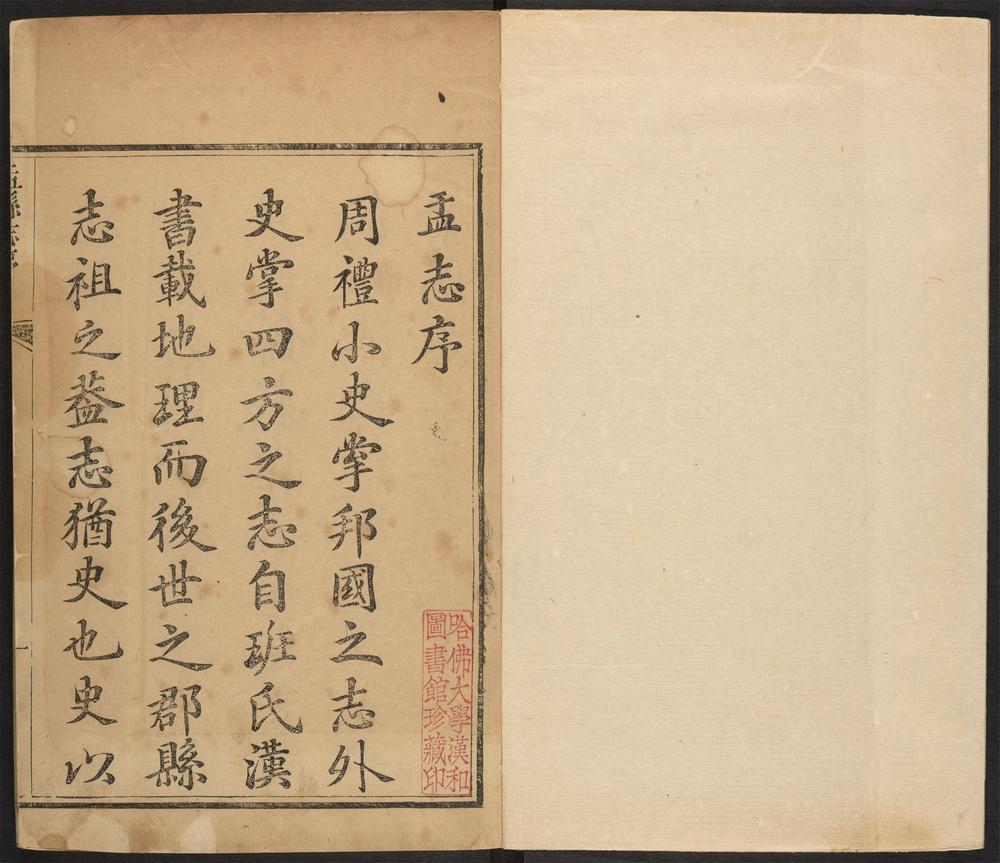 盂志序
周禮小史掌邦國之志外
史掌四方之志自班氏漢
書載地理而後世之郡縣
志祖之葢志猶史也史以
盂縣志序
一
哈佛大學漢和
圖書館珍藏印